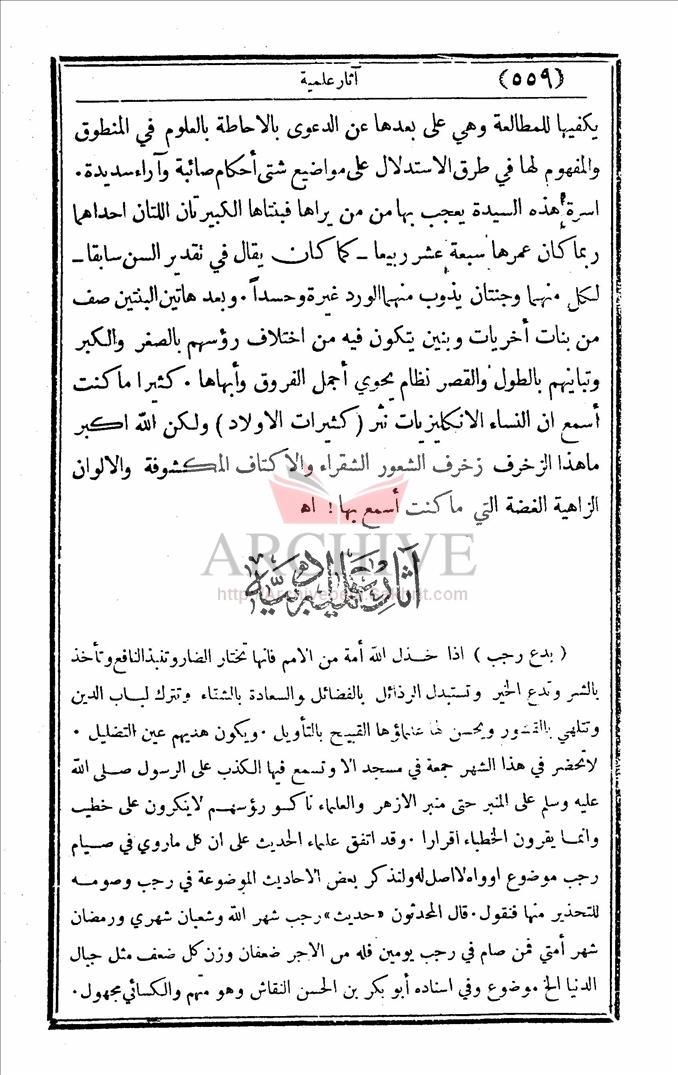 (٥٥٩) آثار علمية
يكفيها للمطالعة وهي على بعدها عن الدعوى بالاحاطة بالعلوم في المنطوق
والمفهوم لها في طرق الاستدلال على مواضيع شتى أحكام صائبة وآراء سديدة.
اسرة هذه السيدة يعجب بها من من يراها فبنتاها الكبيرتان اللتان احداهما
ربما كان عمرها سبعة عشر ربيعا ــ كما كان يقال في تقدير السن سابقا ــ
لكل منهما وجنتان يذوب منهما الورد غيرة وحسداً. وبعد هاتين البنتين صف
من بنات أخريات وبنين يتكون فيه من اختلاف رؤسهم بالصغر والكبر
وتباينهم بالطول والقصر نظام يحوي أجمل الفروق وأبهاها. كثيرا ما كنت
أسمع ان النساء الانكليزيات نثر (كثيرات الاولاد) ولكن الله اكبر
ماهذا الزخرف زخرف الشعور الشقراء والاكتاف المكشوفة والالوان
الزاهية الغضة التي ما كنت أسمع بها! اه
ARCHIVE
http://Archivebeta.Sakhrit.com
آثار علمية أدبية
(بدع رجب) اذا خذل الله أمة من الامم فانها تختار الضار وتنبذ النافع وتأخذ
بالشر وتدع الخير وتستبدل الرذائل بالفضائل والسعادة بالشقاء وتترك لباب الدين
وتتلهى بالقشور ويحسن لها علماؤها القبيح بالتأويل. ويكون هديهم عين التضليل.
لاتحضر في هذا الشهر جمعة في مسجد الا وتسمع فيها الكذب على الرسول صلى الله
عليه وسلم على المنبر حتى منبر الازهر والعلماء ناكسو رؤسهم لاينكرون على خطيب
وانما يقرون الخطباء اقرارا. وقد اتفق علماء الحديث على ان كل ماروي في صيام
رجب موضوع اوواه لااصل له ولنذكر بعض الاحاديث الموضوعة في رجب وصومه
للتحذير منها فنقول. قال المحدثون «حديث» رجب شهر الله وشعبان شهري ورمضان
شهر أمتي فمن صام في رجب يومين فله من الاجر ضعفان وزن كل ضعف مثل جبال
الدنيا الخ موضوع وفي اسناده أبو بكر بن الحسن النقاش وهو متهم والكسائي مجهول.